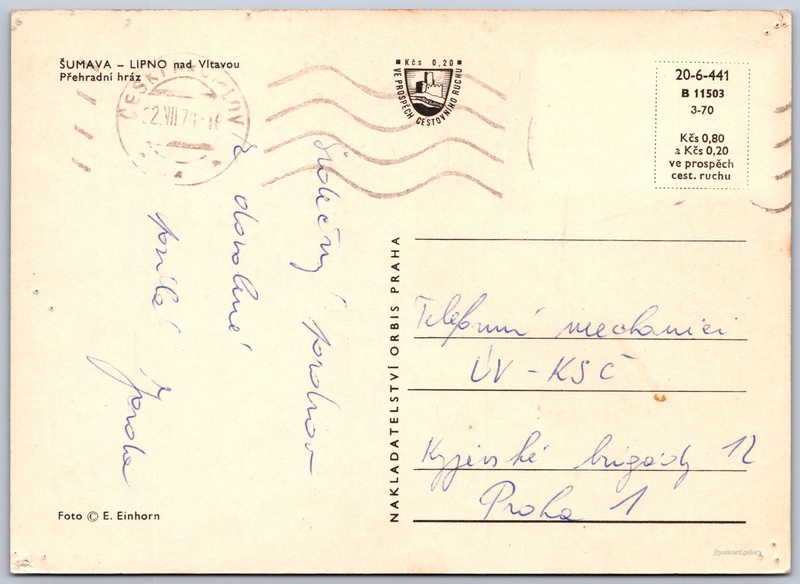 ŠUMAVA – LIPNO nad Vltavou
Přehradní hráz
Kčs 0,20
VE PROSPĚCH CESTOVNÍHO RUCHU
20-6-441
B 11503
3-70
Kčs 0,80
a Kčs 0,20
ve prospěch
cest. ruchu
ČESKÝ KRUMLOV
22.VII.7
Srdečný pozdrav
z dovolené
posílá
Jarda
NAKLADATELSTVÍ ORBIS PRAHA
Telefonní mechanici
ÚV - KSČ
Kyjevské brigády 12
Praha 1
Foto © E. Einhorn